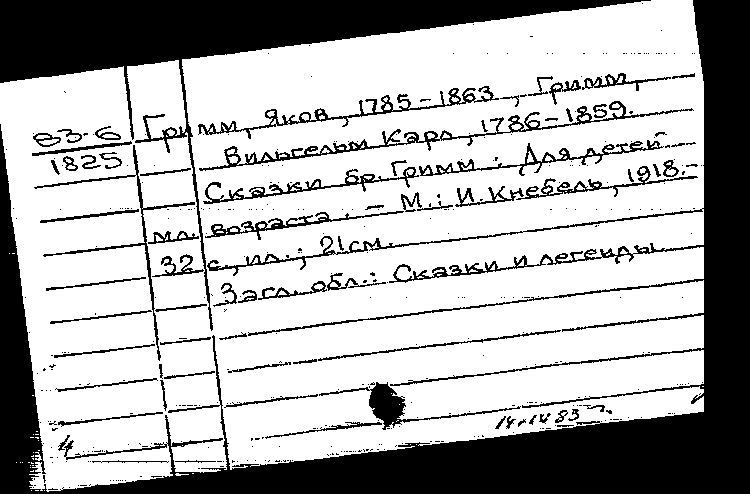 83-6
1825
Гримм, Яков, 1785-1863, Гримм,
Вильгельм Карл, 1786-1859.
Сказки бр. Гримм : Для детей
мл. возраста. - М.: И. Кнебель, 1918.-
32 с., ил.; 21см.
Загл. обл.: Сказки и легенды
4